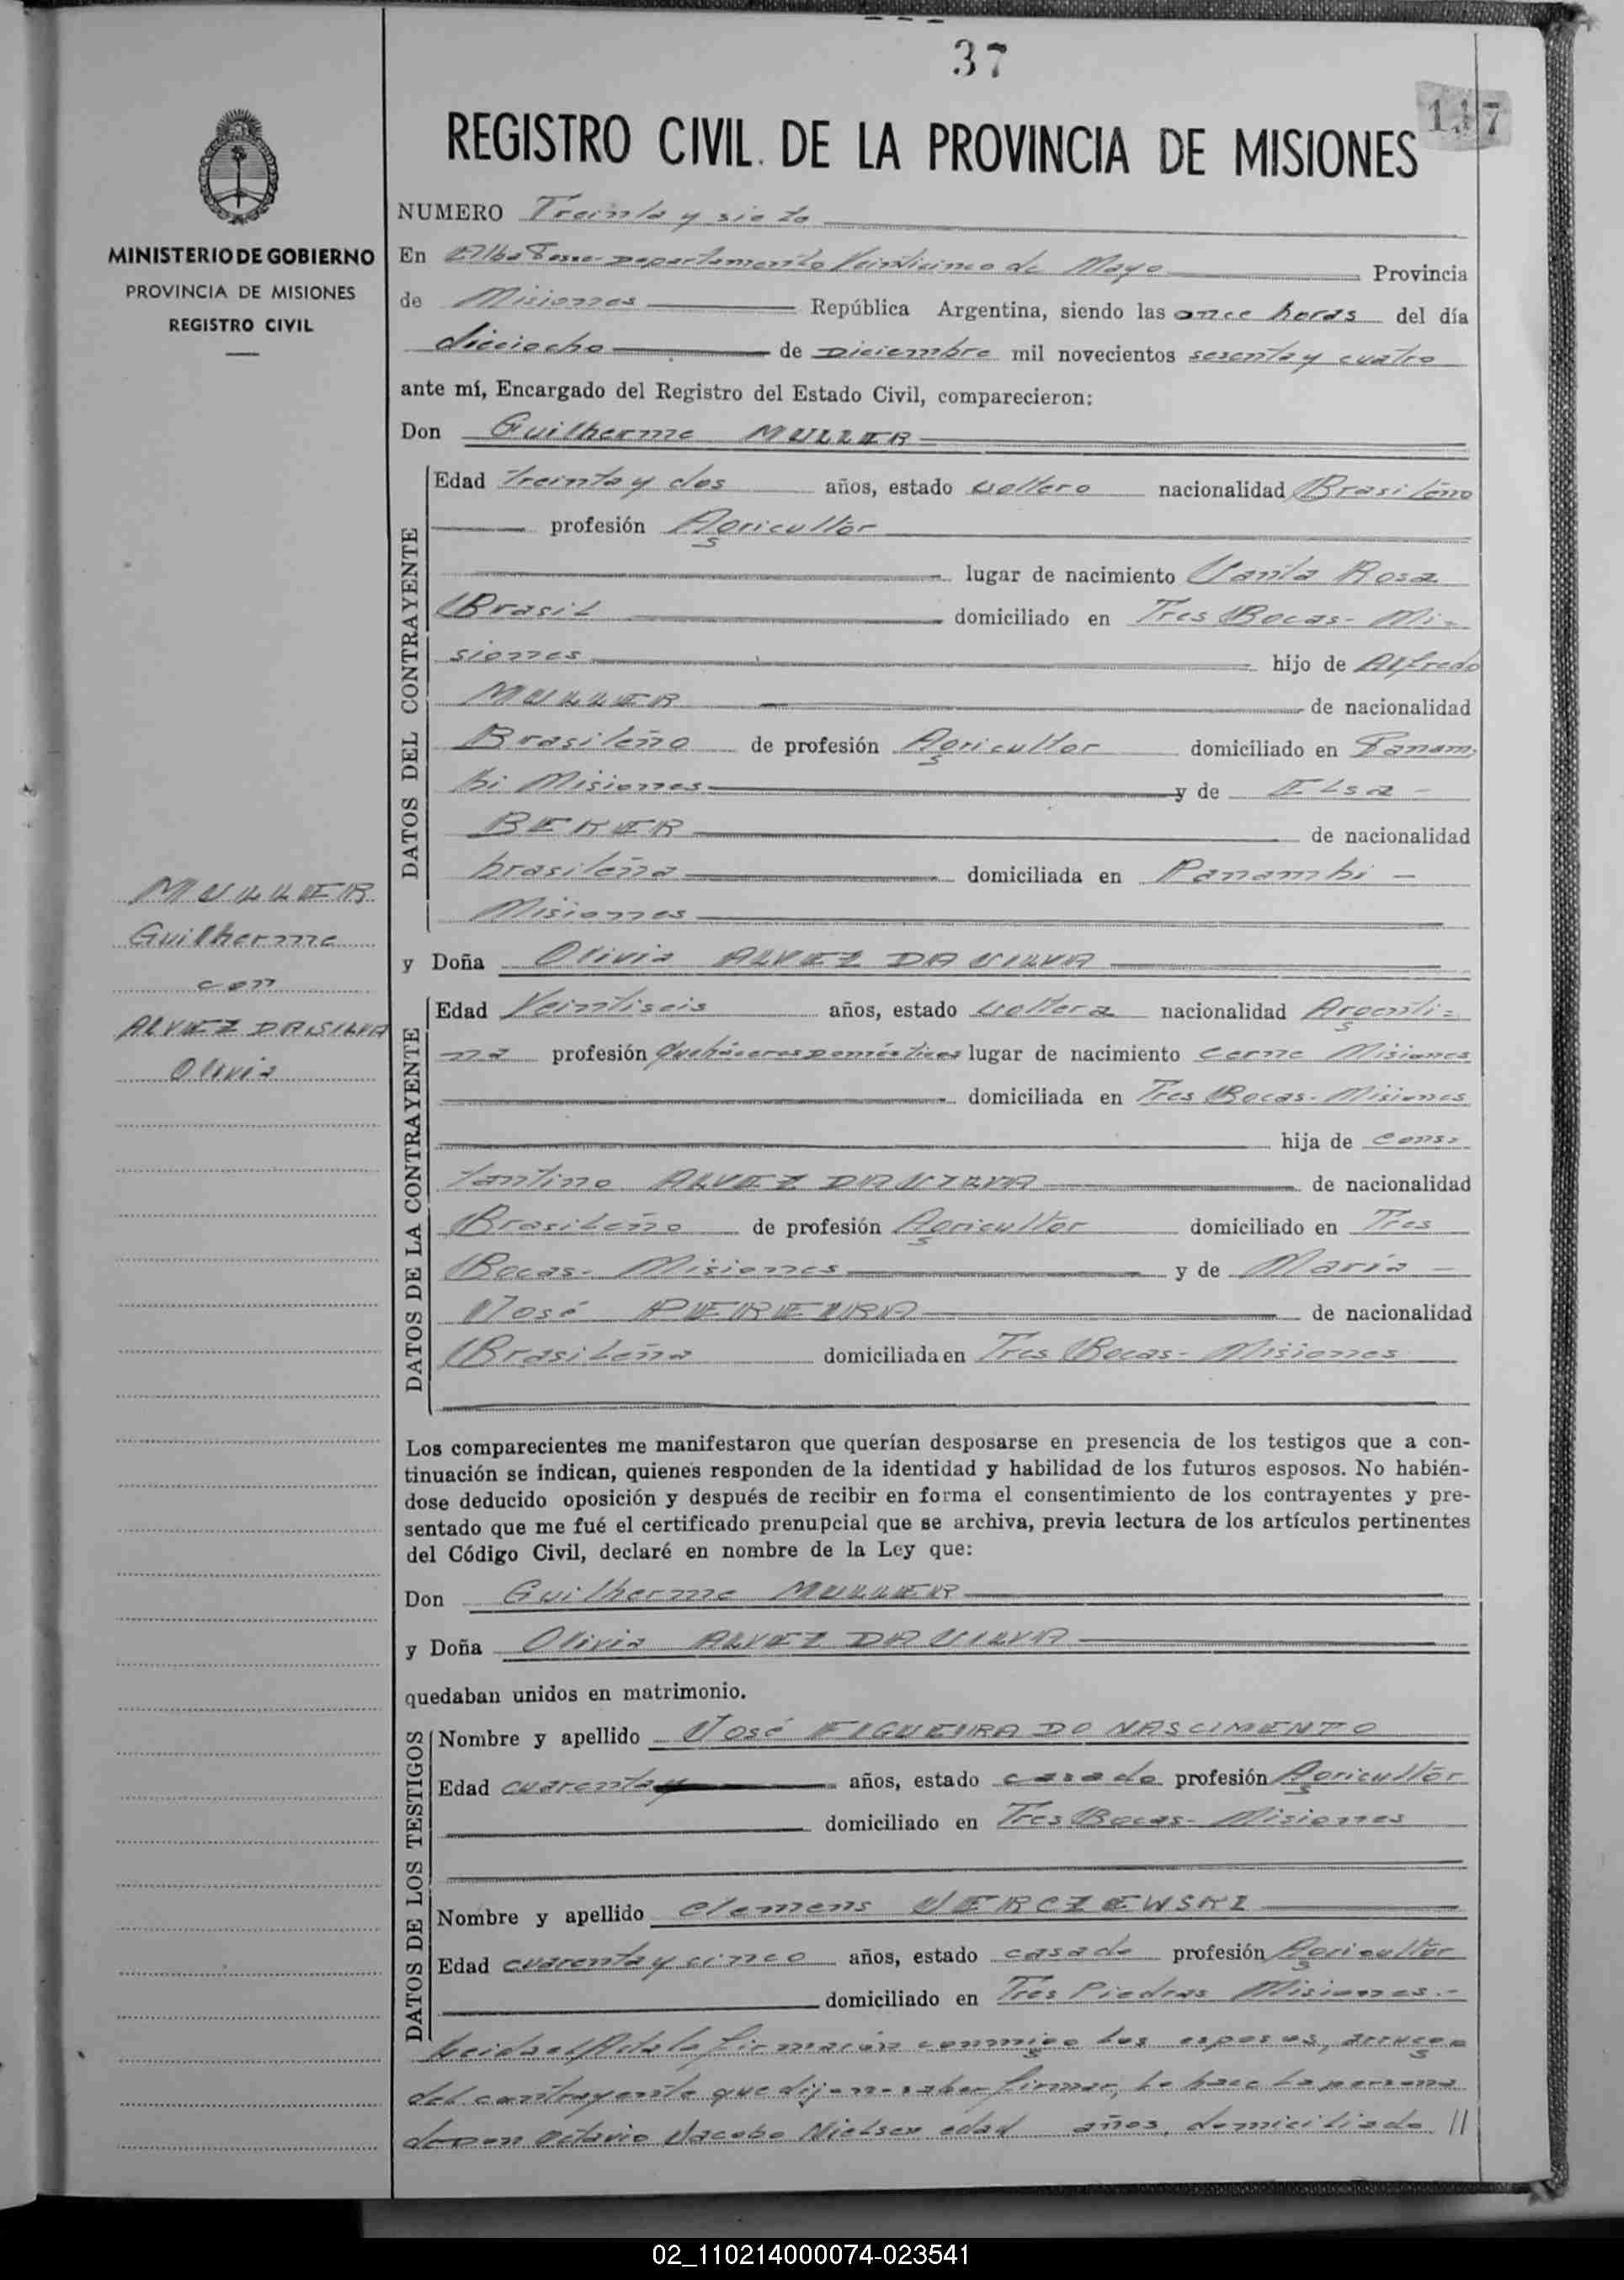 37
117
REGISTRO CIVIL DE LA PROVINCIA DE MISIONES
MINISTERIO DE GOBIERNO
PROVINCIA DE MISIONES
REGISTRO CIVIL
MULLER
Guilherme
con
ALVEZ DA SILVA
Olivia
NUMERO Treinta y siete
En Alba Posse - Departamento Veinticinco de Mayo Provincia
de Misiones República Argentina, siendo las once horas del día
dieciocho de Diciembre mil novecientos sesenta y cuatro
ante mí, Encargado del Registro del Estado Civil, comparecieron:
Don Guilherme MULLER
DATOS DEL CONTRAYENTE
Edad treinta y dos años, estado soltero nacionalidad Brasileño
profesión Agricultor
lugar de nacimiento Santa Rosa
Brasil domiciliado en Tres Bocas - Mi-
siones hijo de Alfredo
MULLER de nacionalidad
Brasileño de profesión Agricultor domiciliado en Panam
bi Misiones y de Elsa -
BEKER de nacionalidad
brasileña domiciliada en Panambi -
Misiones
y Doña Olivia ALVEZ DA SILVA
DATOS DE LA CONTRAYENTE
Edad Veintiseis años, estado soltera nacionalidad Argenti=
na profesión Quehaceres Domésticos lugar de nacimiento Misiones
domiciliada en Tres Bocas - Misiones
hija de Cons=
tantino ALVEZ DA SILVA de nacionalidad
Brasileño de profesión Agricultor domiciliado en Tres
Bocas - Misiones y de María -
José PEREIRA de nacionalidad
Brasileña domiciliada en Tres Bocas - Misiones
Los comparecientes me manifestaron que querían desposarse en presencia de los testigos que a con-
tinuación se indican, quienes responden de la identidad y habilidad de los futuros esposos. No habién-
dose deducido oposición y después de recibir en forma el consentimiento de los contrayentes y pre-
sentado que me fué el certificado prenupcial que se archiva, previa lectura de los artículos pertinentes
del Código Civil, declaré en nombre de la Ley que:
Don Guilherme MULLER
y Doña Olivia ALVEZ DA SILVA
quedaban unidos en matrimonio.
DATOS DE LOS TESTIGOS
Nombre y apellido José FIGUEIRA DO NASCIMENTO
Edad cuarenta años, estado casado profesión Agricultor
domiciliado en Tres Bocas - Misiones
Nombre y apellido Clemens
Edad cuarenta y cinco años, estado casado profesión Agricultor
domiciliado en Tres Piedras Misiones.-
Leida el Acta la firmarán conmigo los esposos, a ruego
del contrayente que dijo no saber firmar, lo hace la persona
de Don Octavio Jacobo Nielsen edad años, domiciliado //
02_110214000074-023541